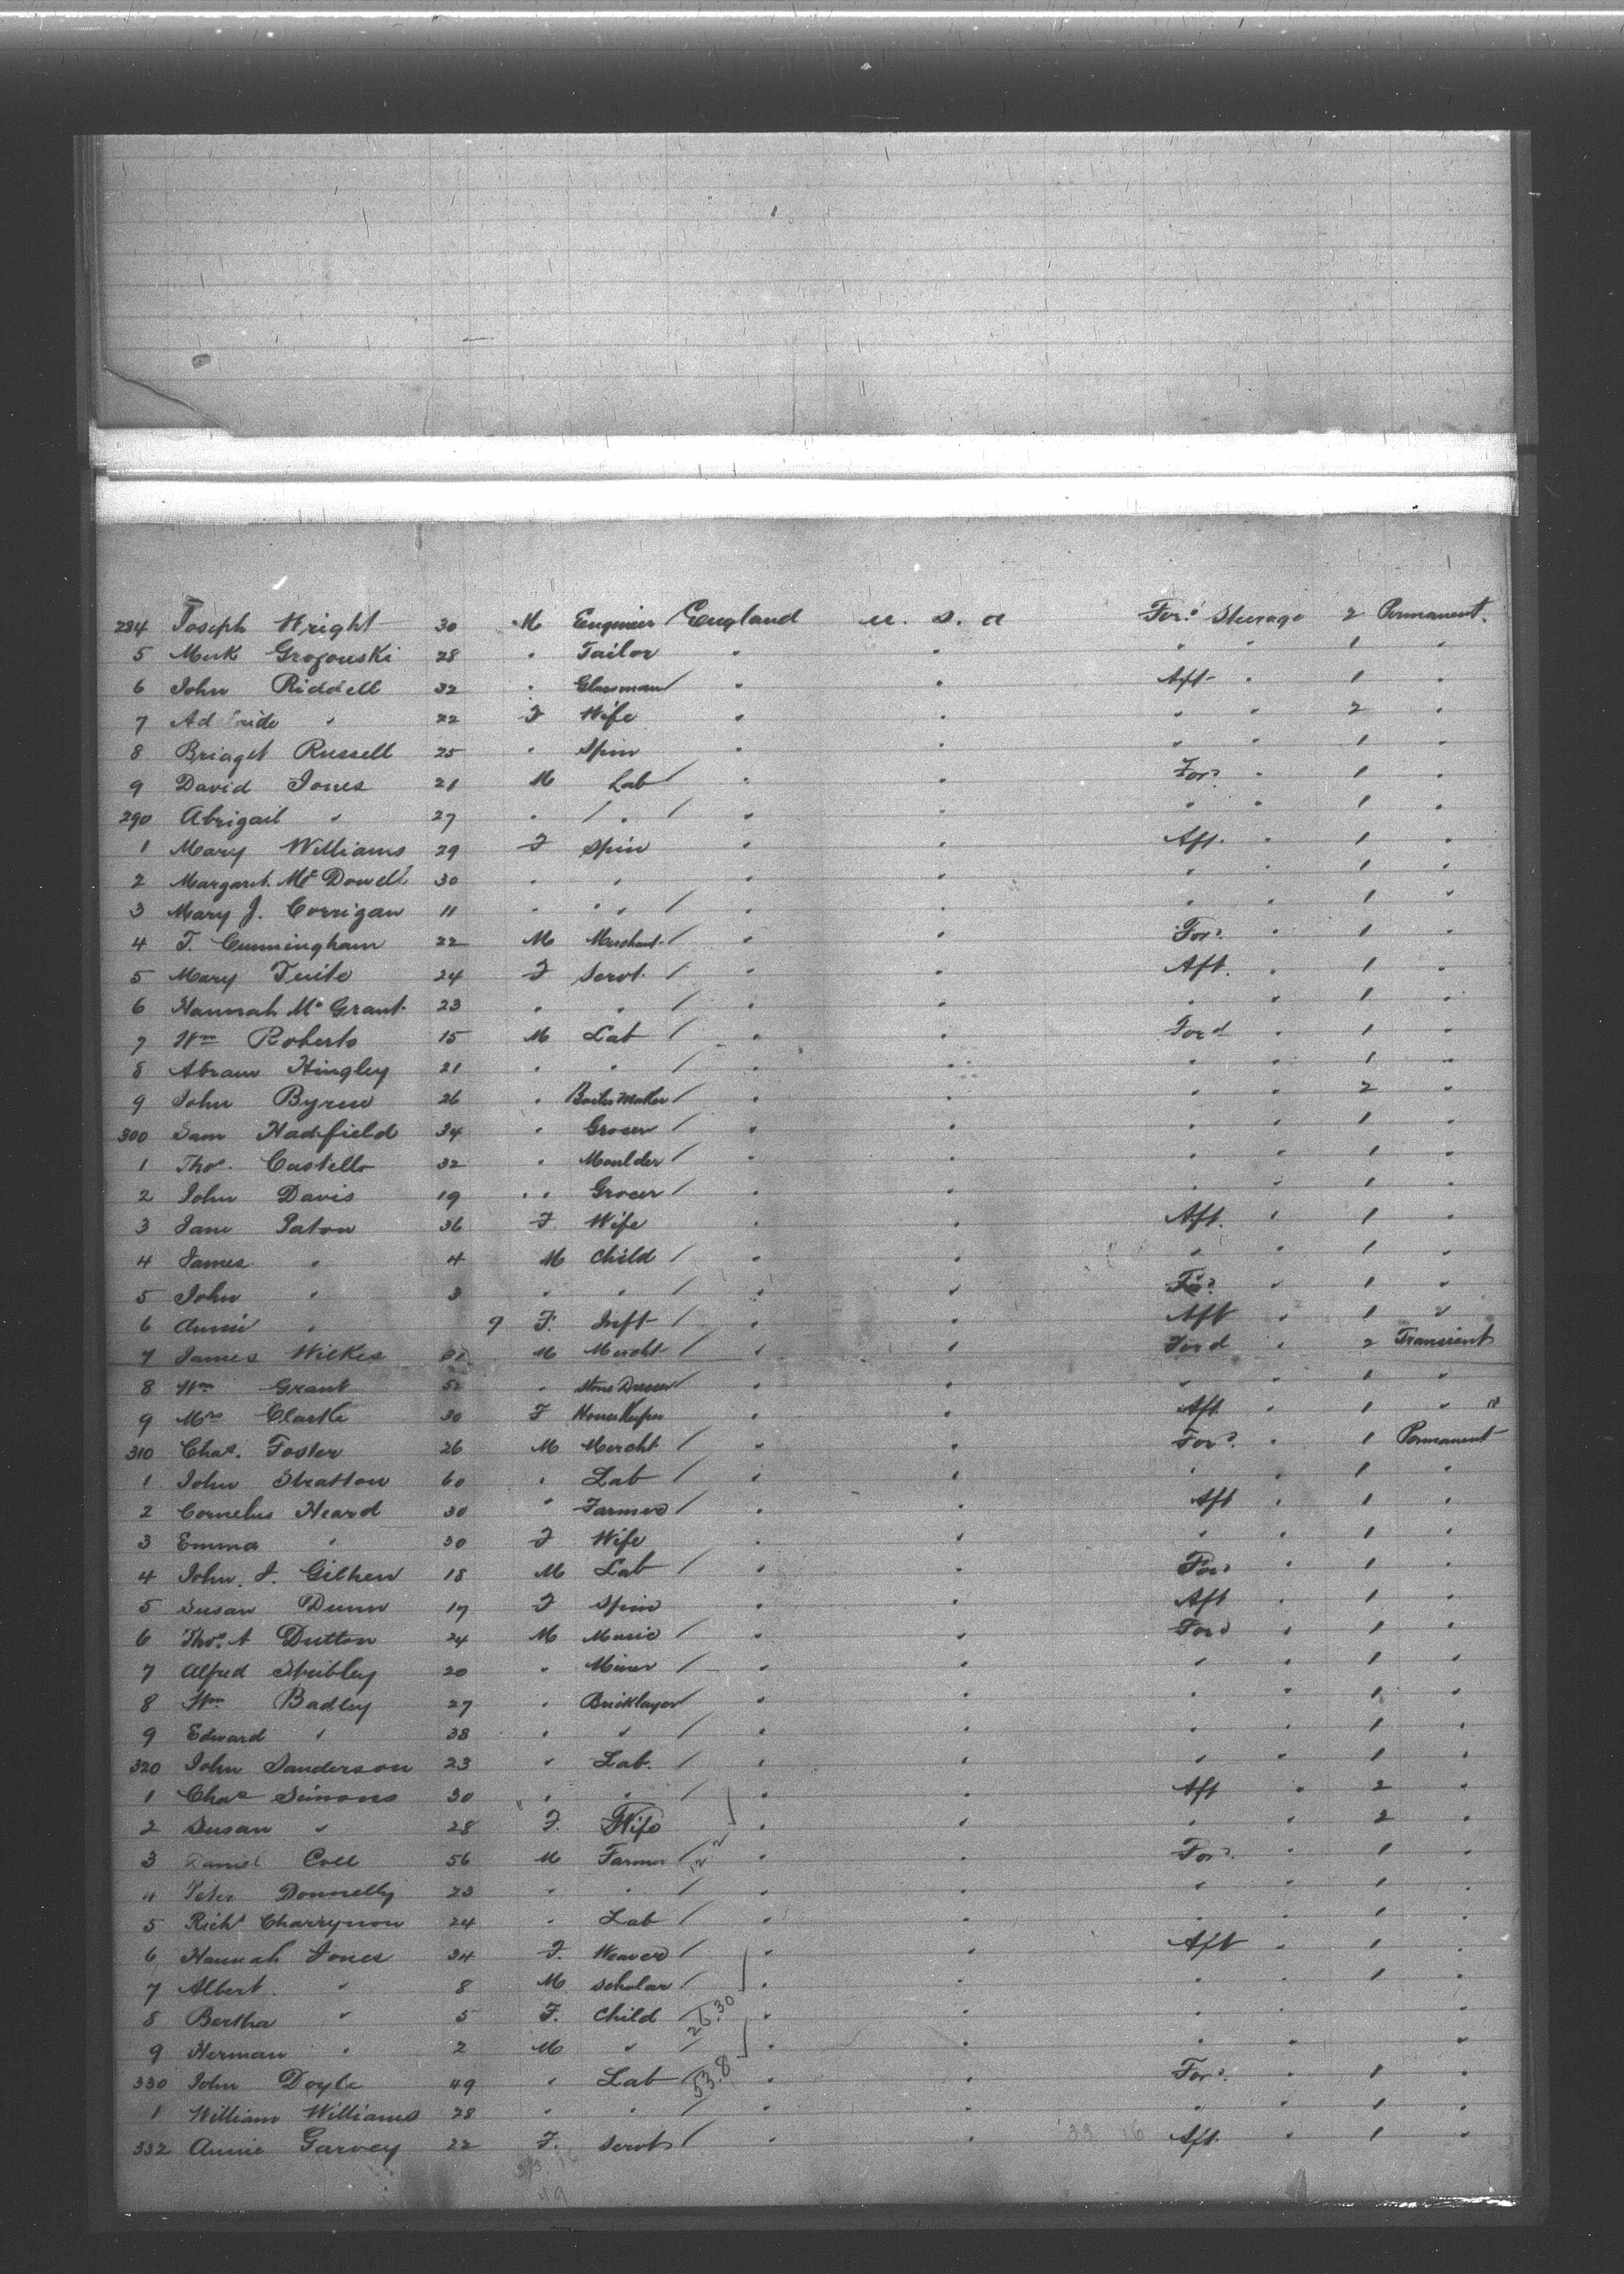 284 Joseph Wright 30 M Engineer / England U. S. A Ford Steerage 2 Permanent.
5 Mark Grogouski 28 " Tailor " " " " 1 "
6 John Riddell 32 " Glassman / " " Aft " 1 "
7 Ad laide " 22 F Wife " " " " 2 "
8 Briaget Russell 25 " Spin " " " " 1 "
9 David Jones 21 M Lab / " " Ford " 1 "
290 Abrigail " 27 " / " / " " " " 1 "
1 Mary Williams 29 F Spin " " Aft " 1 "
2 Margaret McDowell 30 " " " " " " 1 "
3 Mary J. Corrigan 11 " " " / " " " " 1 "
4 T. Cunningham 22 M Merchant / " " Ford " 1 "
5 Mary Tuite 24 F Servt / " " Aft. " 1 "
6 Hannah McGrant 23 " " / " " " " 1 "
7 Wm Roberts 15 M Lab / " " Ford " 1 "
8 Abram Hingley 21 " " / " " " " 1 "
9 John Byrne 26 " Boiler Maker / " " " " 2 "
300 Sam Hadfield 34 " Grocer / " " " " 1 "
1 Thos. Castello 32 " Moulder / " " " " 1 "
2 John Davis 19 " " Grocer / " " " " 1 "
3 Jane Paton 36 F. Wife " " Aft. " 1 "
4 James " 4 M Child / " " " " 1 "
5 John " 3 " " / " " Ford " 1 "
6 Annie " 9 F. Inft / " " Aft " 1 "
7 James Wilkes M Mercht / " " Ford " 2 Transient
8 Wm Grant 52 " Stone Dresser / " " " " 1 "
9 Mrs Clarke 30 F House Keeper " " Aft " 1 " "
310 Chas. Foster 26 M Mercht / " " Ford. " 1 Permanent
1 John Stratton 60 " Lab / " " " " 1 "
2 Cornelus Heard 30 " Farmer / " " Aft " 1 "
3 Emma " 30 F Wife " " " " 1 "
4 John. J. Gilhen 18 M Lab / " " Ford " 1 "
5 Susan Dunn 17 F Spin " " Aft " 1 "
6 Thos. A Dutton 24 M Music / " " Ford " 1 "
7 Alfred Stribley 20 " Miner / " " " " 1 "
8 Wm Badley 27 " Bricklayer / " " " " 1 "
9 Edward " 38 " " / " " " " 1 "
320 John Sanderson 23 " Lab. / " " " " 1 "
1 Chas Simons 30 " " / " " Aft " 2 "
2 Susan " 28 F. Wife " " " " 2 "
3 Daniel Coll 56 M Farmer / " " Ford. " 1 "
4 Peter Donnelly 23 " " / " " " " 1 "
5 Richd Charrynon 24 " Lab / " " " " 1 "
6 Hannah Jones 34 F. Weaver / " " Aft " 1 "
7 Albert. " 8 M Scholar / " " " " 1 "
8 Bertha " 5 F. Child / 26.30 " " " " "
9 Herman " 2 M " / " " " " "
330 John Doyle 49 " Lab / 53.8 " " Ford. " 1 "
1 William Williams 28 " " / " " " " 1 "
332 Annie Garvey 22 F. Servt / " " 33 16 Aft. " 1 "
49